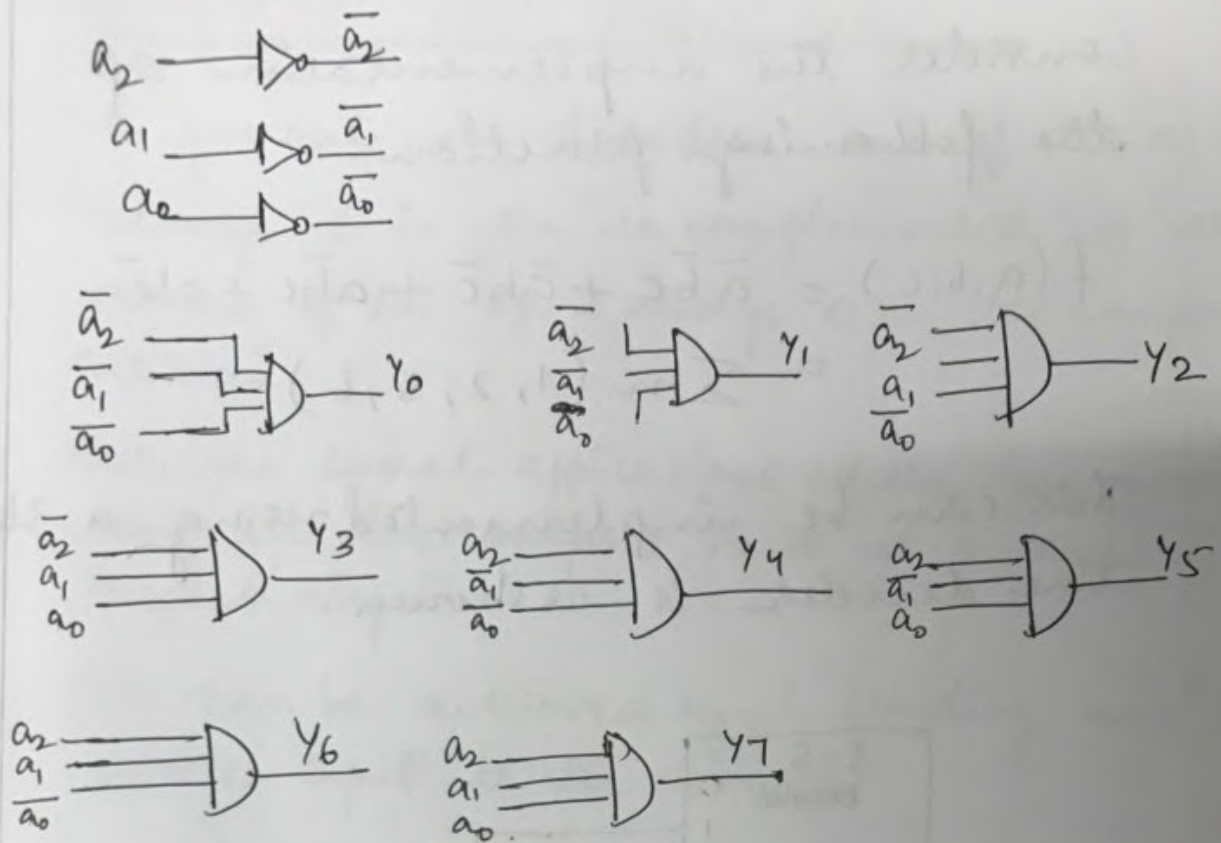 a₂ a̅₂
a₁ a̅₁
a₀ a̅₀
a̅₂
a̅₁
a̅₀
Y₀
a̅₂
a̅₁
a₀
Y₁
a̅₂
a₁
a̅₀
Y₂
a̅₂
a₁
a₀
Y₃
a₂
a̅₁
a̅₀
Y₄
a₂
a̅₁
a₀
Y₅
a₂
a₁
a̅₀
Y₆
a₂
a₁
a₀
Y₇